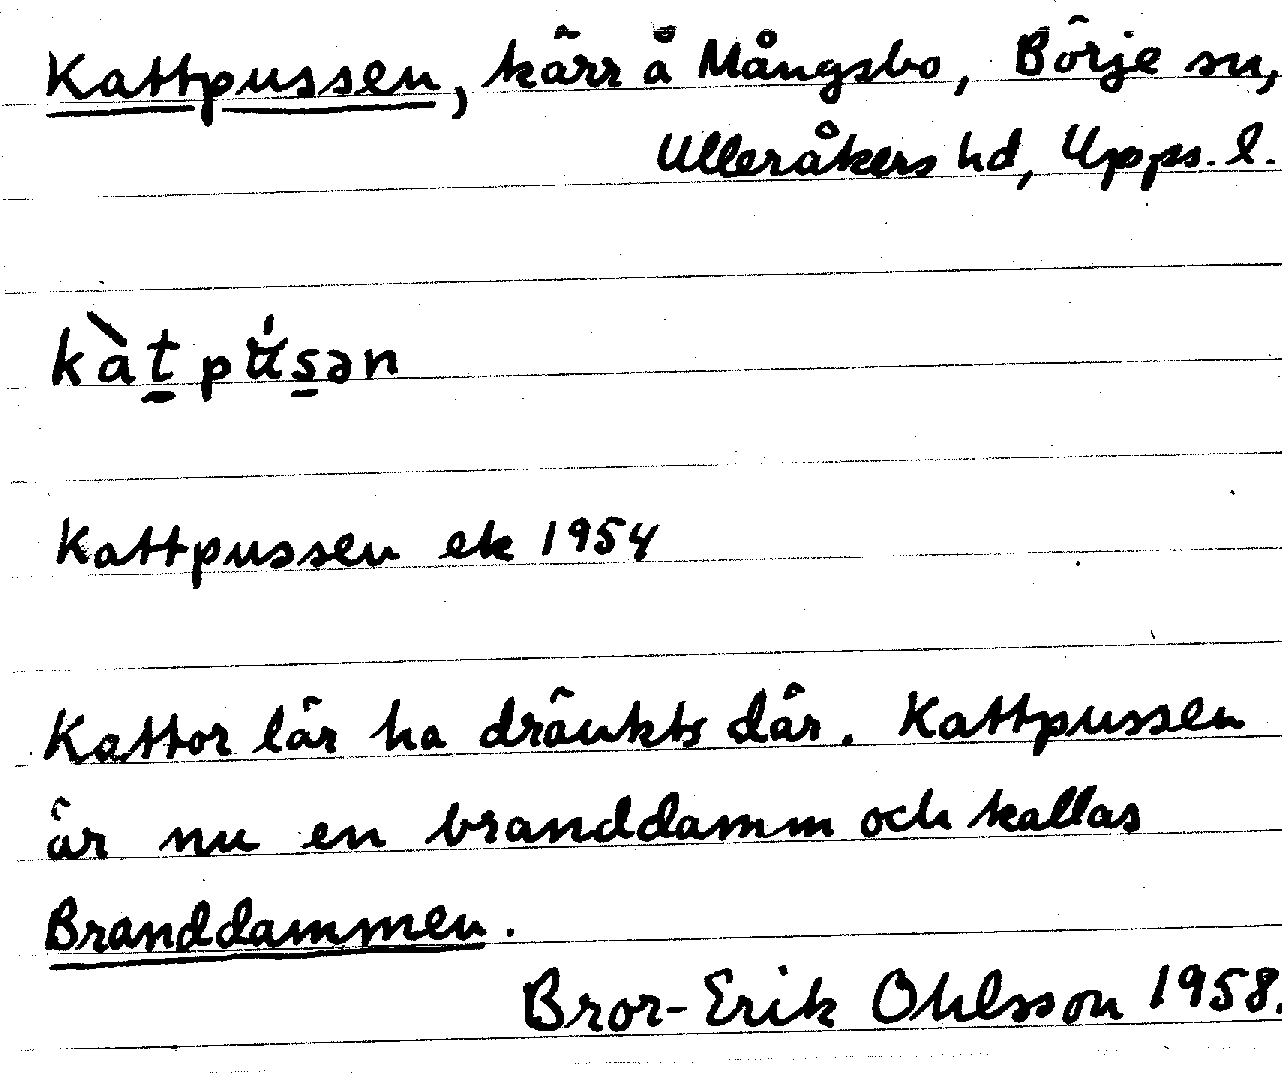 Kattpussen, kärr å Mångsbo, Börje sn,
Ulleråkers hd, Upps. l.
kàt̠pʉ́s̠ən
Kattpussen ek 1954
Kattor lär ha dränkts där. Kattpussen
är nu en branddamm och kallas
Branddammen.
Bror-Erik Ohlsson 1958.